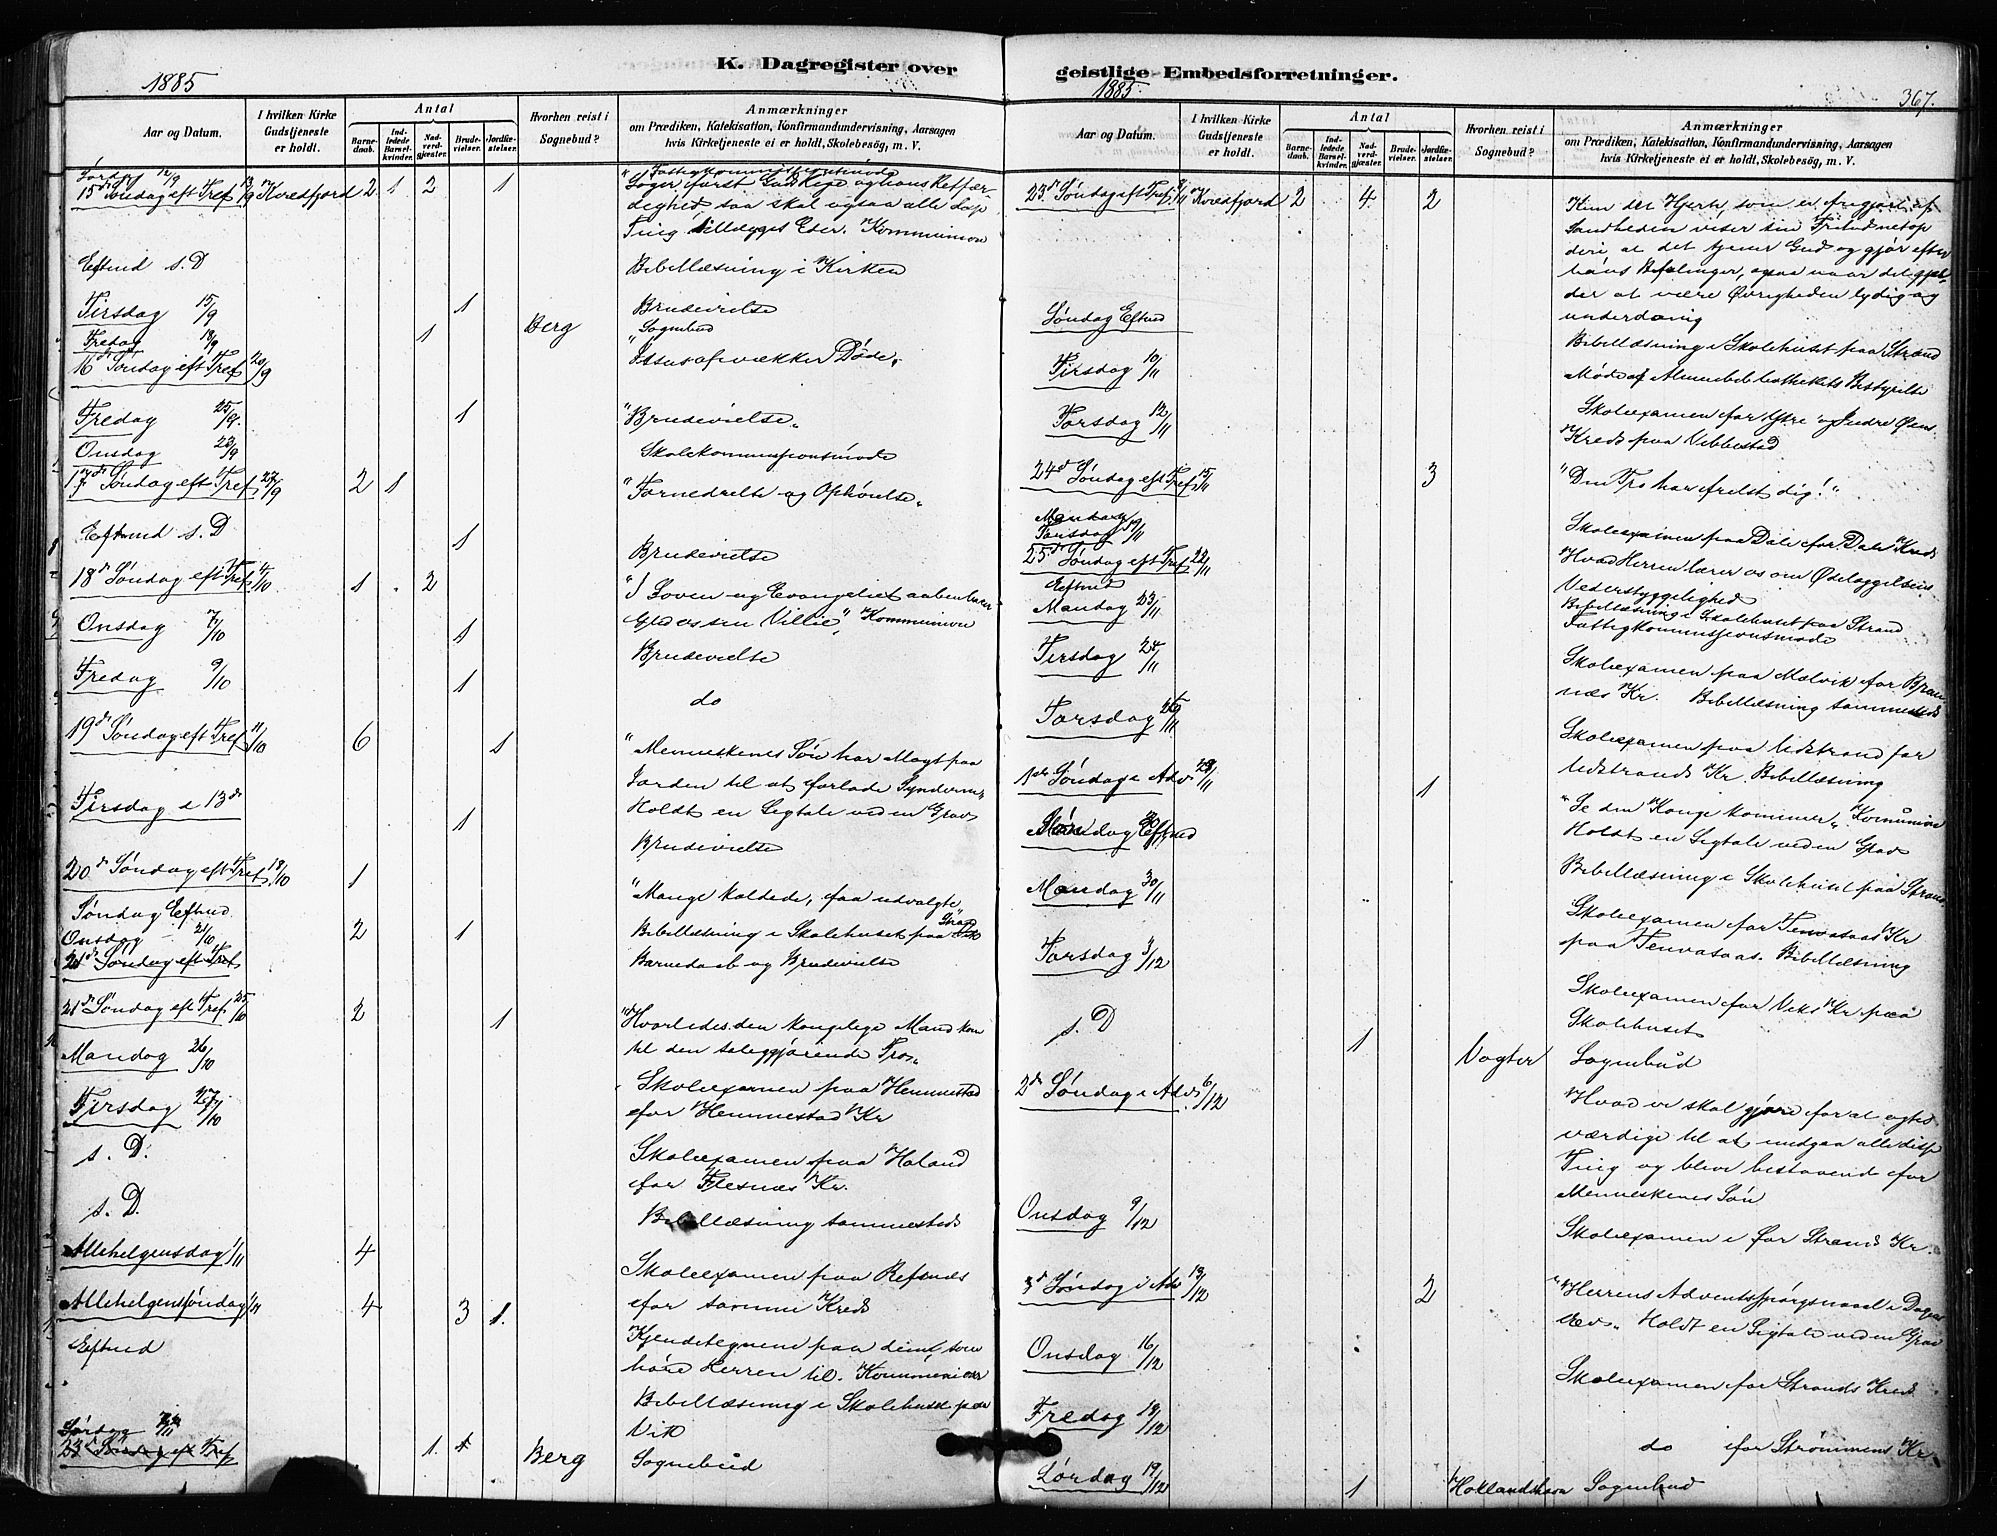 K. Dagregister over
1885
Aar og Datum.
I hvilken Kirke Gudstjeneste er holdt.
Antal
Barnedaab.
Indledede Barselkvinder.
Nadverdgjæster.
Brudevielser.
Jordfæstelser.
Hvorhen reist i Sognebud?
Anmærkninger
om Prædiken, Katekisation, Konfirmandundervisning, Aarsagen
hvis Kirketjeneste ei er holdt, Skolebesøg, m. V.
Lørdag 12/9 Fattigkommissionsmøde
15de Søndag eft Tref 13/9 Kvedfjord 2 1 2 1 "Søger først Guds Rige og hans Retfær-
dighed saa skal ogsaa alle
Ting tillægges Eder. Kommunion
Eftmd s. D Bibellæsning i Kirken
Tirsdag 15/9 1 Brudevielse
Fredag 18/9 1 Berg Sognebud
16de Søndag eft Tref 20/9 "Jesus opvækker Døde"
Fredag 25/9. 1 "Brudevielse"
Onsdag 23/9 Skolekommissionsmøde
17de Søndag eft Tref. 27/9 2 1 "Fornedrelse og Ophøielse"
Eftmd s. D 1 Brudevielse
18de Søndag eft Tref 4/10 1 . 2 "I Loven og Evangeliet aabenbarer
Gud os sin Villie", Kommunion
Onsdag 7/10 1 Brudevielse
Fredag 9/10 1 do
19de Søndag eft Tref 11/10 6 1 "Menneskenes Søn har Magt paa
Jorden til at forlade Synderne"
Holdt en Ligtale ved en Grav
Tirsdag i 13de 1 Brudevielse
20de Søndag eft Tref. 18/10 1 "Mange kaldede, faa udvalgte"
Søndag Eftmd Bibellæsning i Skolehuset paa Strand
Onsdag 21/10 2 1 Barnedaab og Brudevielse
21de Søndag eft Tref
21de Søndag eft Tref 25/10 2 1 "Hvorledes den kongelige Mand kom
til den saliggjørende Tro"
Mandag 26/10 Skoleexamen paa Hemmestad
for Hemmestad Kr
Tirsdag 27/10 Skoleexamen paa Haland
for Flesnæs Kr.
s. D. Bibellæsning sammesteds
s. D. Skoleexamen paa Refsnæs
for samme Kreds
Allehelgensdag 1/11 4
Allehelgenssøndag 1/11 4 3 1. Kjendetegnene paa dem, som
høre Herren til. Kommunion
Eftmd Bibellæsning i Skolehuset paa
Vik
Lørdag 7/11 1. 1 Berg Sognebud
23de Søndag ef Tref
geistlige Embedsforretninger.
1885.
367.
Aar og Datum.
I hvilken Kirke Gudstjeneste er holdt.
Antal
Barnedaab.
Indledede Barselkvinder.
Nadverdgjæster.
Brudevielser.
Jordfæstelser.
Hvorhen reist i Sognebud?
Anmærkninger
om Prædiken, Katekisation, Konfirmandundervisning, Aarsagen
hvis Kirketjeneste ei er holdt, Skolebesøg, m. V.
23de Søndag eft Tref. 8/11 Kvedfjord 2 4 2 Kun det Hjerte, som er frigjort af
Sandheden viser sin Frihed netop
deri at det tjener Gud og gjør efter
hans Befalinger, ogsaa naar det gjæl-
der at være Øvrigheden lydig og
underdanig
Søndag Eftmd Bibellæsning i Skolehuset paa Strand
Tirsdag 10/11 Møde af Almuebibliothekets Bestyrelse
Torsdag 12/11 Skoleexamen for Ytre og Indre Øens
Kreds paa Vebbestad
24de Søndag eft Tref 15/11 3 "Din Tro har frelst dig!"
Mandag
Torsdag 19/11 Skoleexamen paa Dale for Dale Kreds
25de Søndag eft Tref 22/11 Hvad Herren lærer os om Ødelæggelsens
Vederstyggelighed
Eftmd Bibellæsning i Skolehuset paa Strand
Mandag 23/11 Fattigkommissionsmøde
Tirsdag 24/11 Skoleexamen paa Melvik for Bræn-
næs Kr. Bibellæsning sammesteds
Torsdag 26/11 Skoleexamen paa Utstrand for
Utstrands Kr. Bibellæsning
1ste Søndag i Adv 29/11 1 "Se din Konge kommer", Kommunion
Holdt en Ligtale ved en Grav
Søndag Eftmd Bibellæsning i Skolehuset paa Strand
Mandag 30/11 Skoleexamen for Tenvasaas Kr
paa Tenvasaas. Bibellæsning
Torsdag 3/12 Skoleexamen for Viks Kr paa
Skolehuset
s. D 1 Vogter Sognebud
2de Søndag i Adv. 6/12 Hvad vi skal gjøre for at agtes
værdige til at undgaa alle disse
Ting og blive bestaaende for
Menneskenes Søn
Onsdag 9/12 Skoleexamen i for Strands Kr.
3de Søndag i Adv 13/12 2 "Herrens Adventsspørgsmaal i Dagens
Ev" Holdt en Ligtale ved en Grav
Onsdag 16/12 Skoleexamen for Strands Kreds
Fredag 18/12 do for Strømmens Kr.
Lørdag 19/12 1 Hollandshavn Sognebud